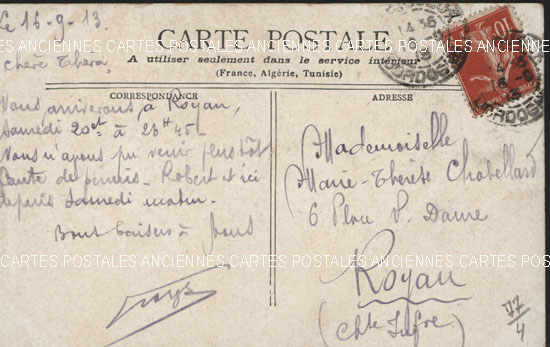 Le 16-9-13
CARTE POSTALE
CARTES POSTALES ANCIENNES CARTES POSTALES ANCIENNES CARTES POSTALES ANCIENNES
A utiliser seulement dans le service intérieur
(France, Algérie, Tunisie)
CORRESPONDANCE
ADRESSE
Chère
Nous arriverons à Royan,
Samedi 20 à 23h 45-
Nous n'avons pu venir plus tôt
faute de permis - Robert est ici
depuis Samedi matin.
Bons baisers à tous
Mademoiselle
Marie-Thérèse Chobellard
6 Place N. Dame
CARTES POSTALES ANCIENNES CARTES POSTALES ANCIENNES CARTES POSTALES ANCIENNES
Royan
(Chte Infre)
77/4
10